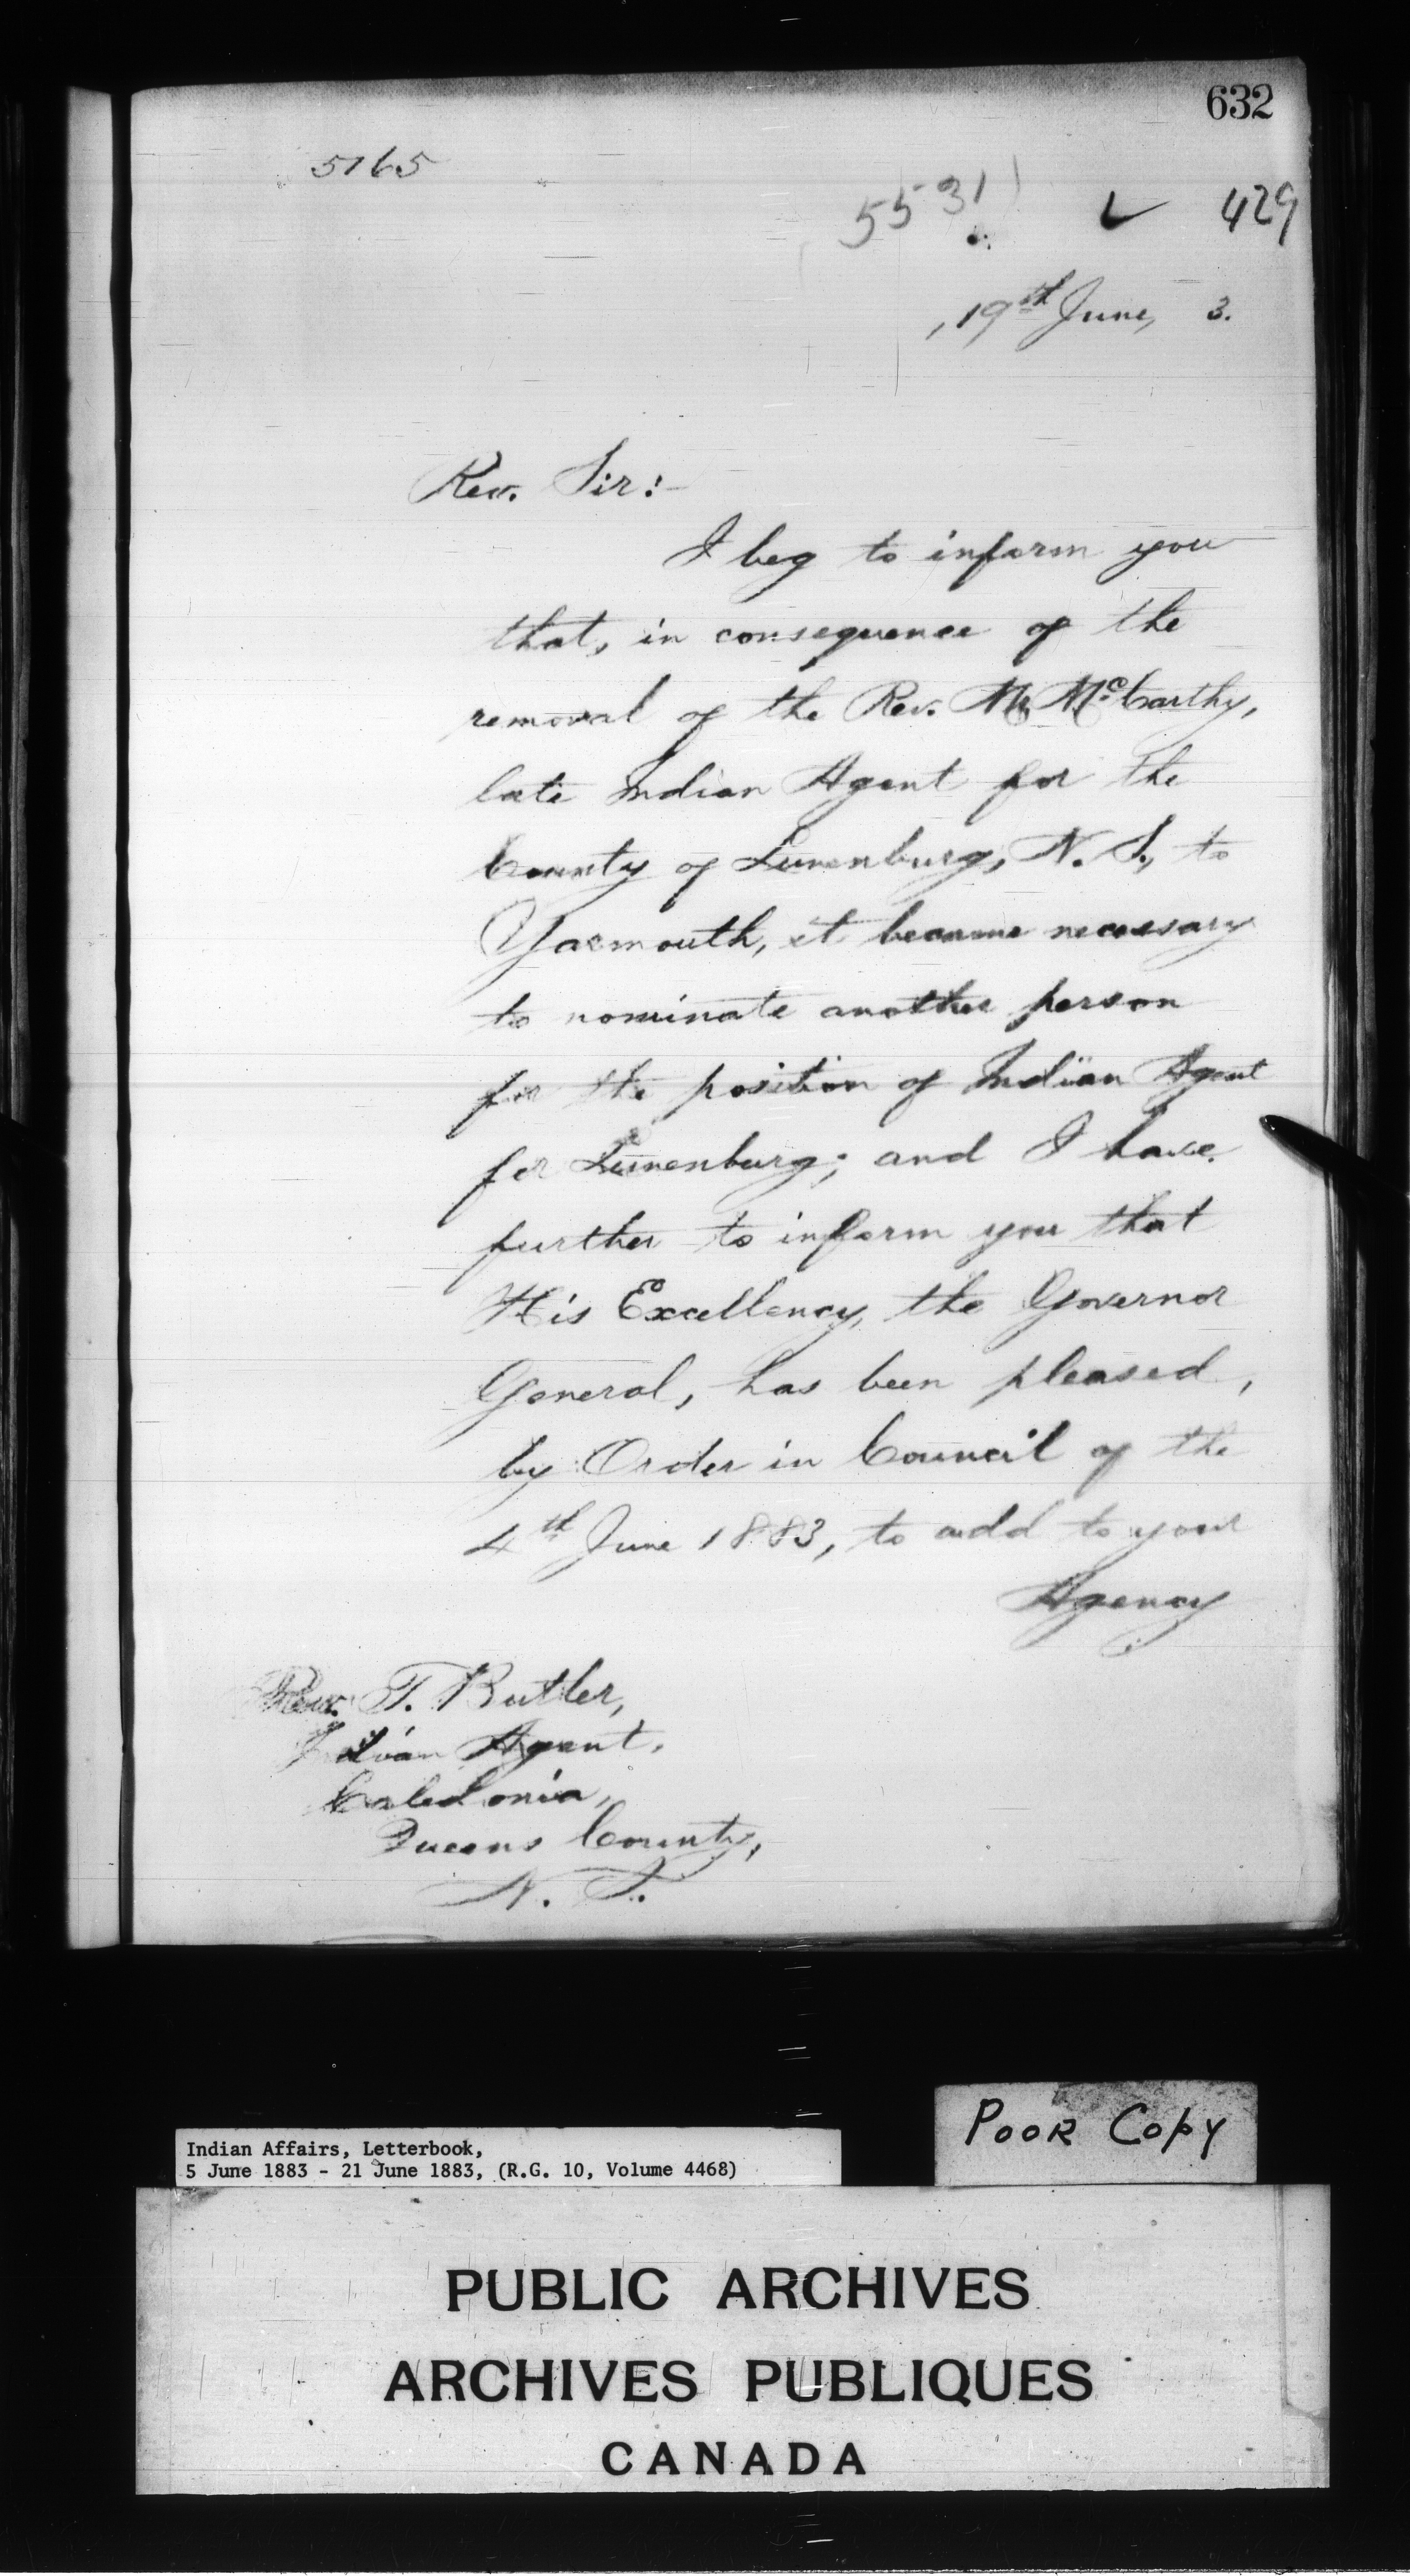 632
5165
5531
429
19th June, 3.
Rev. Sir:-
I beg to inform you
that, in consequence of the
removal of the Rev. Mr. McCarthy,
late Indian Agent for the
County of Lunenburg, N. S., to
Yarmouth, it became necessary
to nominate another person
for the position of Indian Agent
for Lunenburg; and I have
further to inform you that
His Excellency, the Governor
General, has been pleased,
by Order in Council of the
4th June 1883, to add to your
Agency
Rev. T. Butler,
Indian Agent,
Caledonia,
Queens County,
N. S.
Poor Copy
Indian Affairs, Letterbook,
5 June 1883 - 21 June 1883, (R.G. 10, Volume 4468)
PUBLIC ARCHIVES
ARCHIVES PUBLIQUES
CANADA